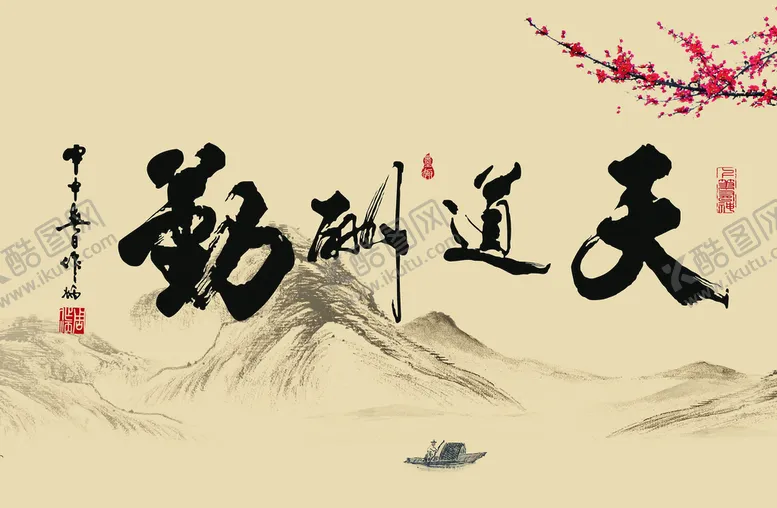 天道酬勤
甲申年春日作炳
酷图网
www.ikutu.com
酷图网
www.ikutu.com
酷图网
www.ikutu.com